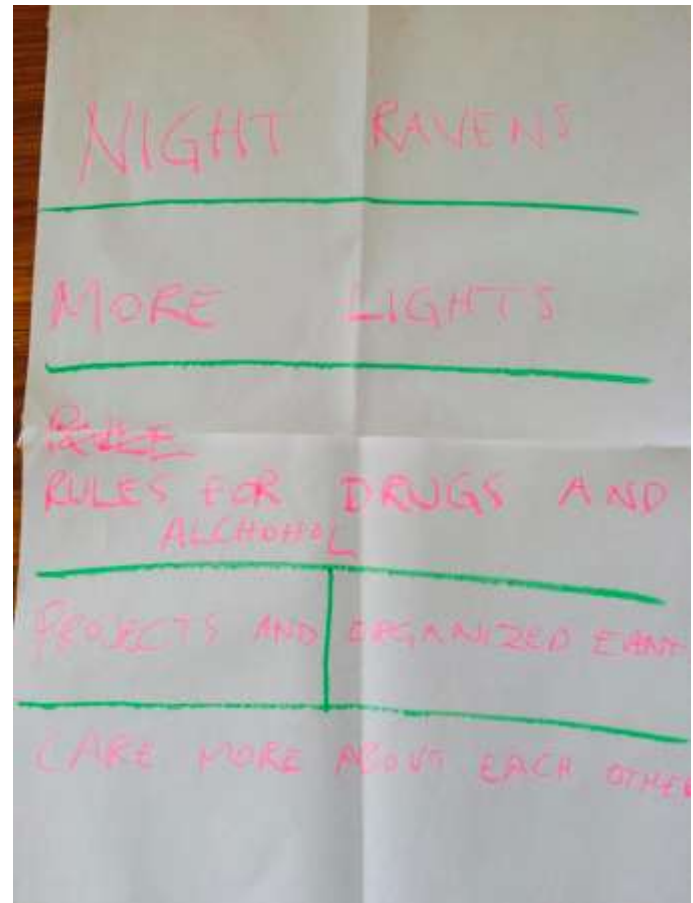 NIGHT RAVENS
MORE LIGHTS
RULES FOR DRUGS AND
ALCHOHOL
PROJECTS AND ORGANIZED
CARE MORE ABOUT EACH OTHER